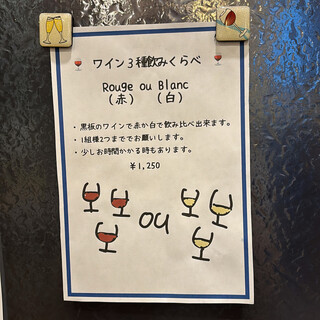 ワイン3種飲みくらべ
Rouge ou Blanc
(赤) (白)
・黒板のワインで赤か白で飲み比べ出来ます。
・1組様2つまででお願いします。
・少しお時間かかる時もあります。
￥1,250
ou